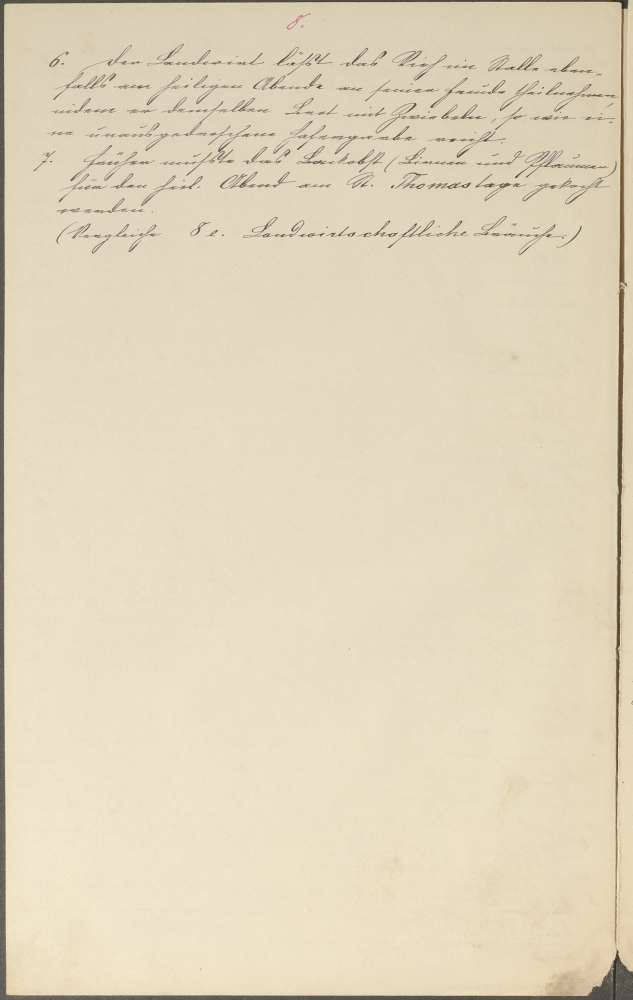 8.
6. Der Landwirt läßt das Vieh im Stalle eben-
falls am heiligen Abende an seiner Freude theilnehmen,
indem er demselben Brot mit Zwiebeln, so wie ei-
ne unausgedroschene Hafergarbe reicht.
7. Früher mußte das Backobst (Birnen und Pflaumen)
für den heil. Abend am St. Thomastage gekocht
werden.
(Vergleiche 8 e. Landwirtschaftliche Bräuche.)